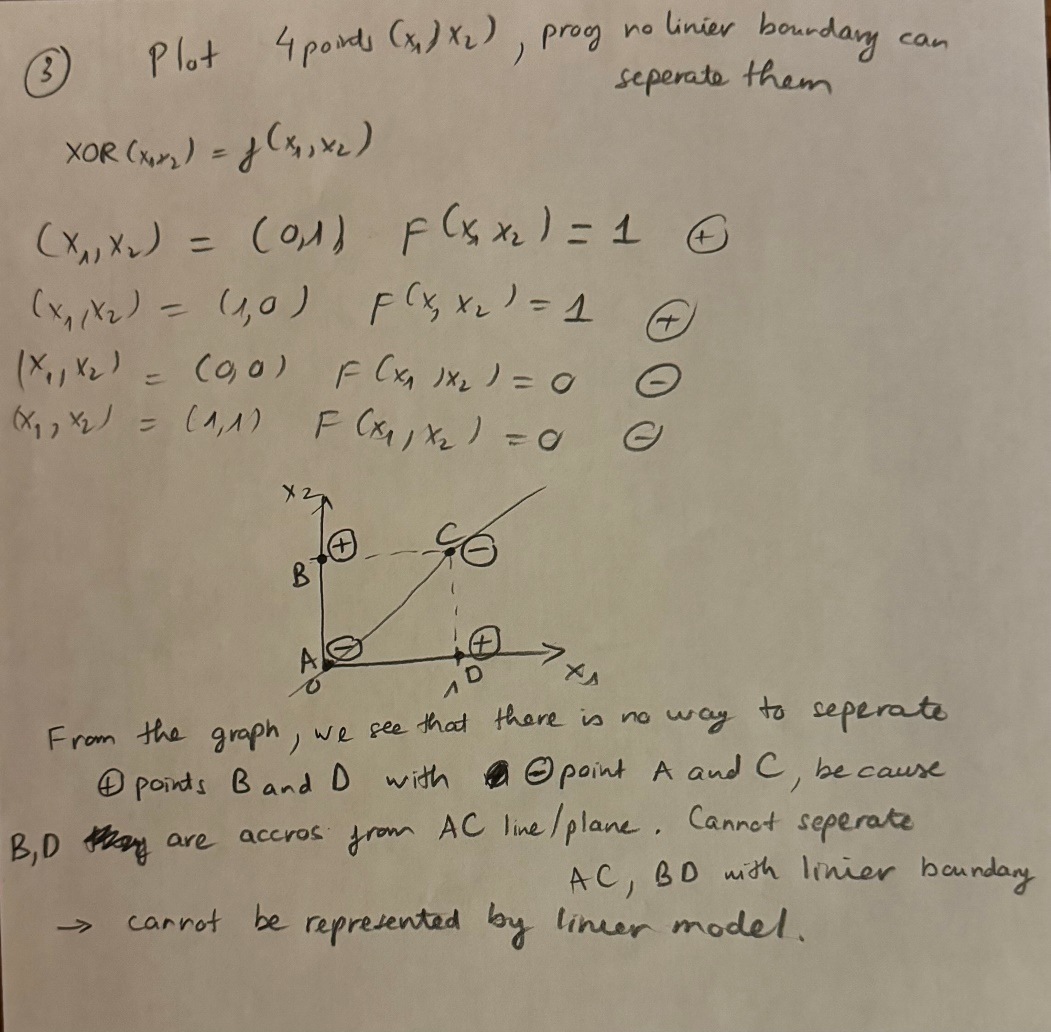 ③ Plot 4 points (x₁, x₂), prog no linier boundary can
seperate them
XOR (x₁,x₂) = f(x₁, x₂)
(x₁, x₂) = (0,1) F(x₁ x₂) = 1 ⊕
(x₁, x₂) = (1,0) F(x₁ x₂) = 1 ⊕
(x₁, x₂) = (0,0) F(x₁, x₂) = 0 ⊖
(x₁, x₂) = (1,1) F(x₁, x₂) = 0 ⊖
x₂
B ⊕ C ⊖
A ⊖ ⊕
0 1 D x₁
From the graph, we see that there is no way to seperate
⊕ points B and D with ⊖ point A and C, because
B,D are accros from AC line/plane. Cannot seperate
AC, BD with linier boundary
→ cannot be represented by linier model.